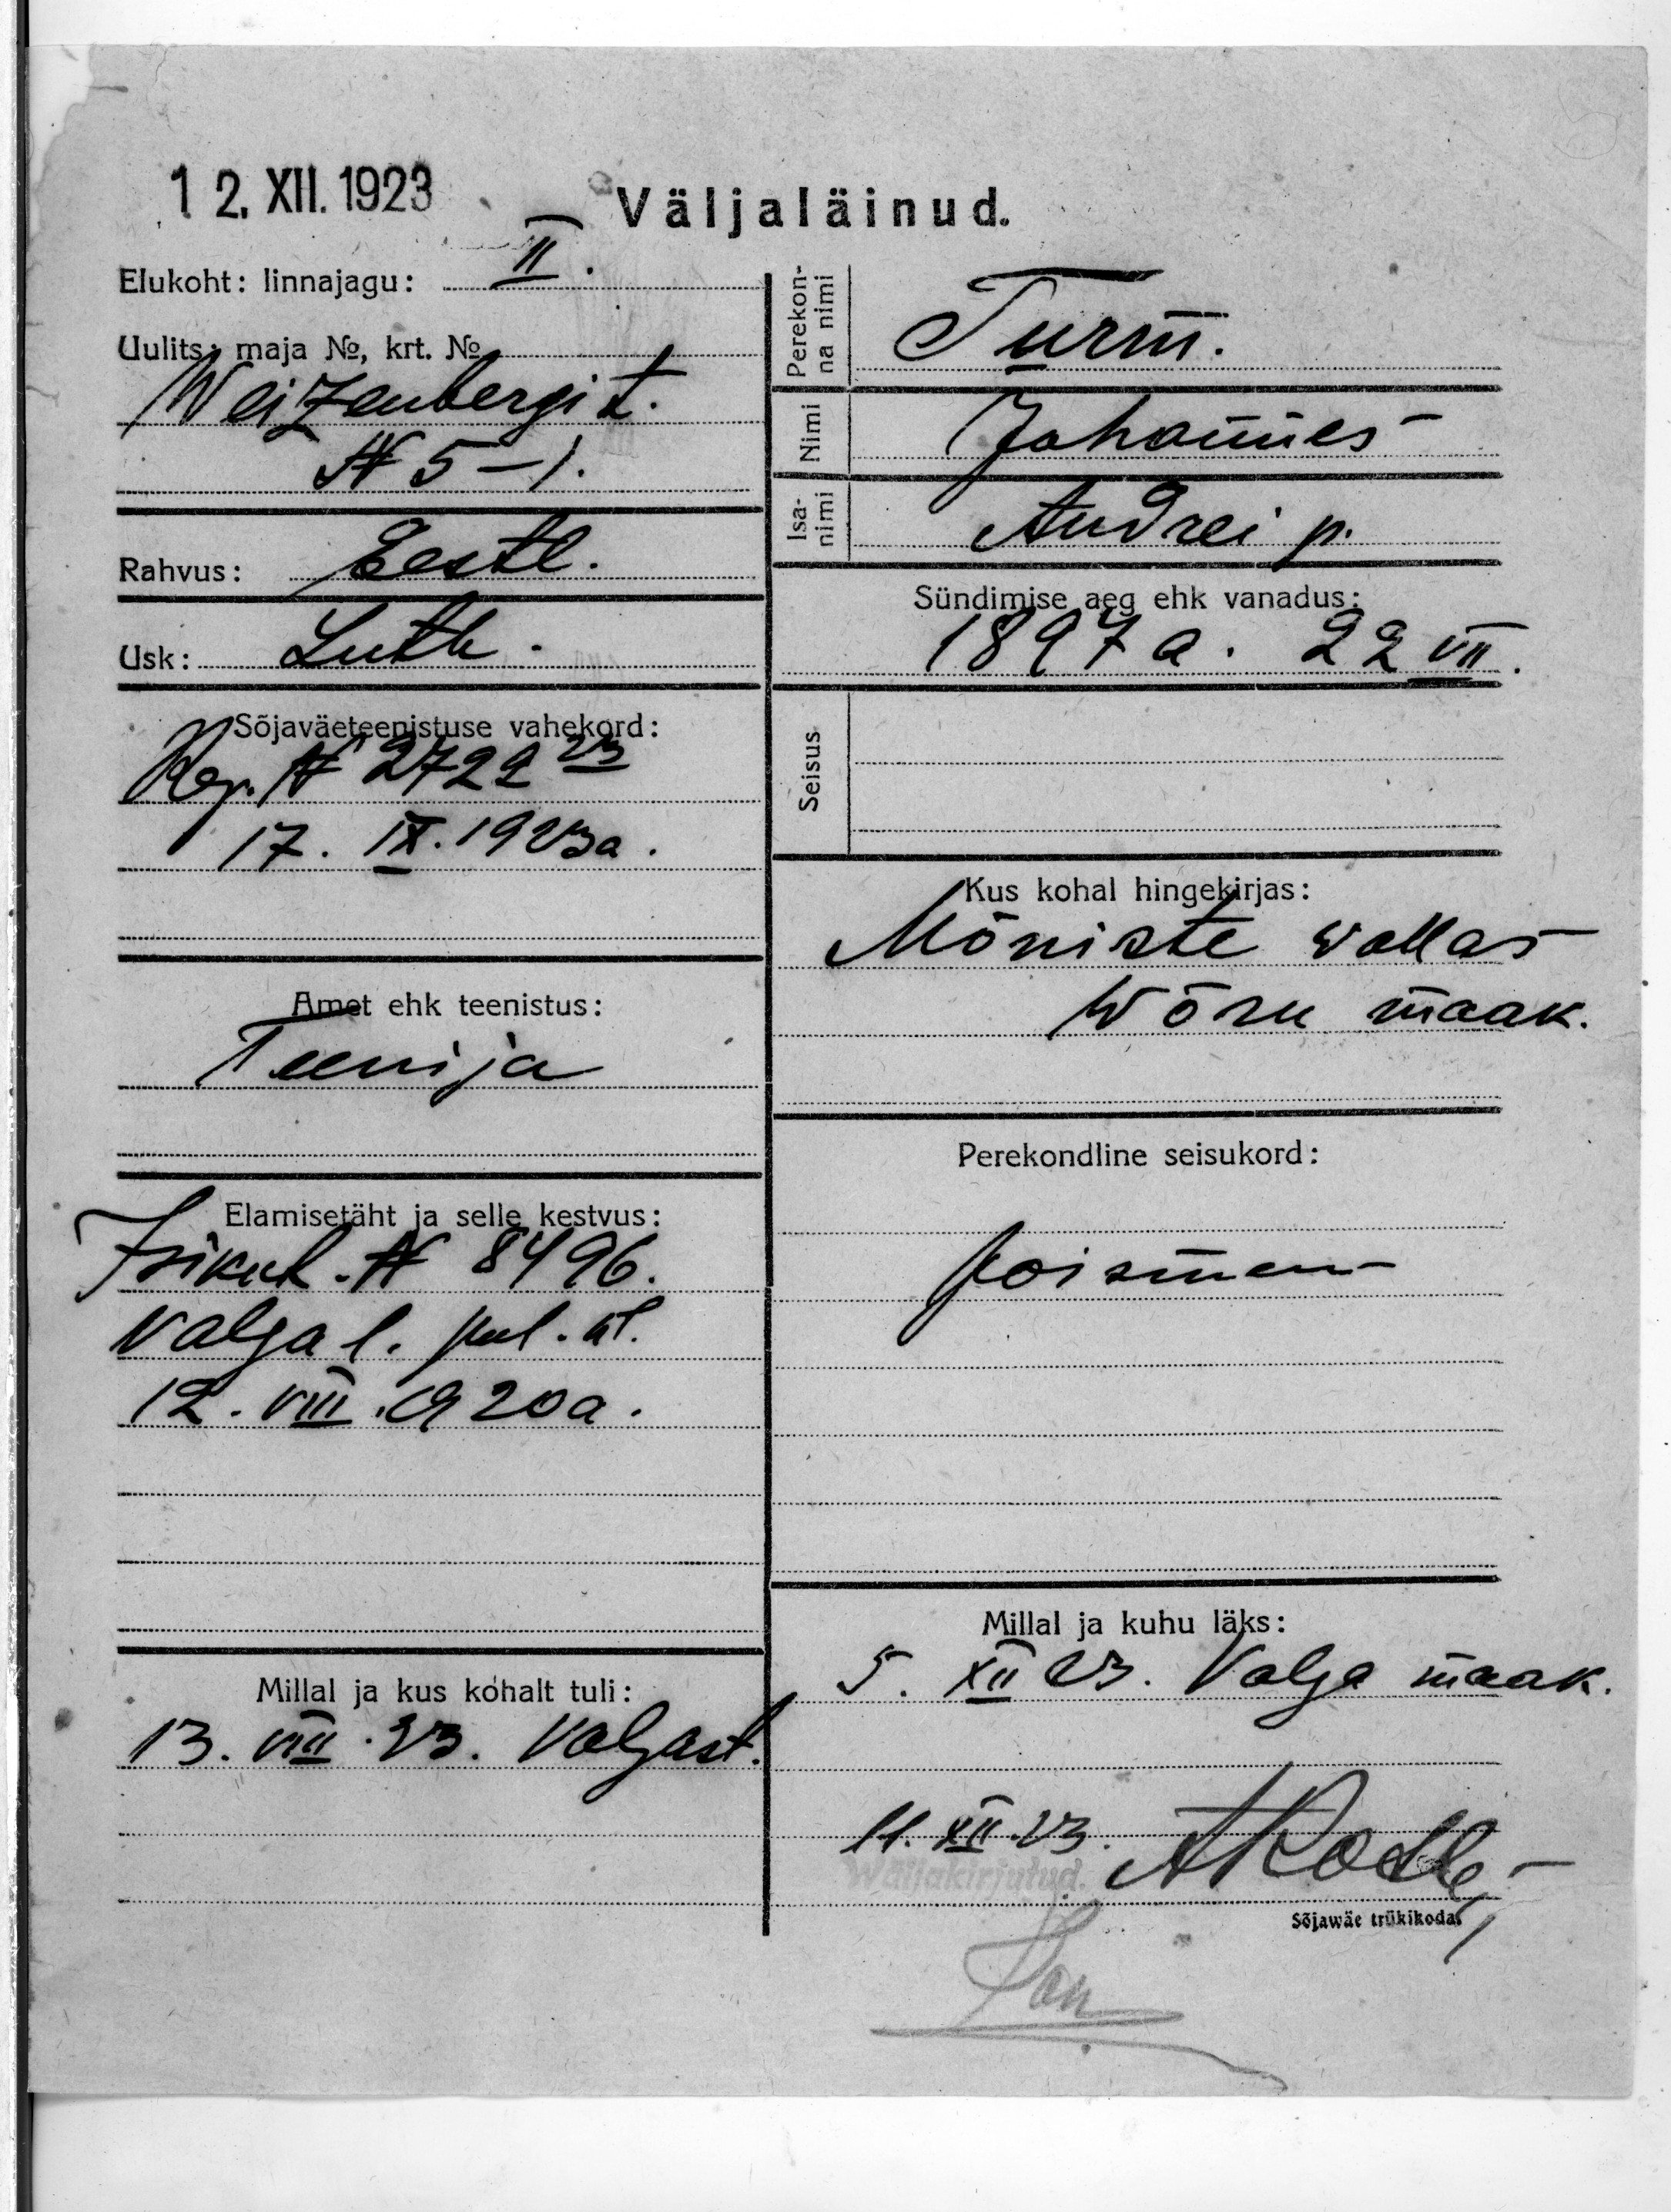 12. XII. 1923
Väljaläinud.
Elukoht: linnajagu: II.
Uulits, maja №, krt. №
Weizenbergi t.
№ 5-1.
Rahvus: Eestl.
Usk: Luth.
Sõjaväeteenistuse vahekord:
№ 2722 23
17. IX. 1923 a.
Amet ehk teenistus:
Teenija
Elamisetäht ja selle kestvus:
Isikut. № 8496.
Valga l. pol. ül.
12. VIII. 920 a.
Millal ja kus kohalt tuli:
13. VIII. 23. Valgast.
Perekonna nimi
Turm.
Nimi
Johannes
Isanimi
Andrei p.
Sündimise aeg ehk vanadus:
1897 a. 22 VII.
Seisus
Kus kohal hingekirjas:
Mõniste wallas
Wõru maak.
Perekondline seisukord:
poismees
Millal ja kuhu läks:
5. XII 23. Valga maak.
11. XII. 23.
Wäljakirjutud.
Sõjawäe trükikoda